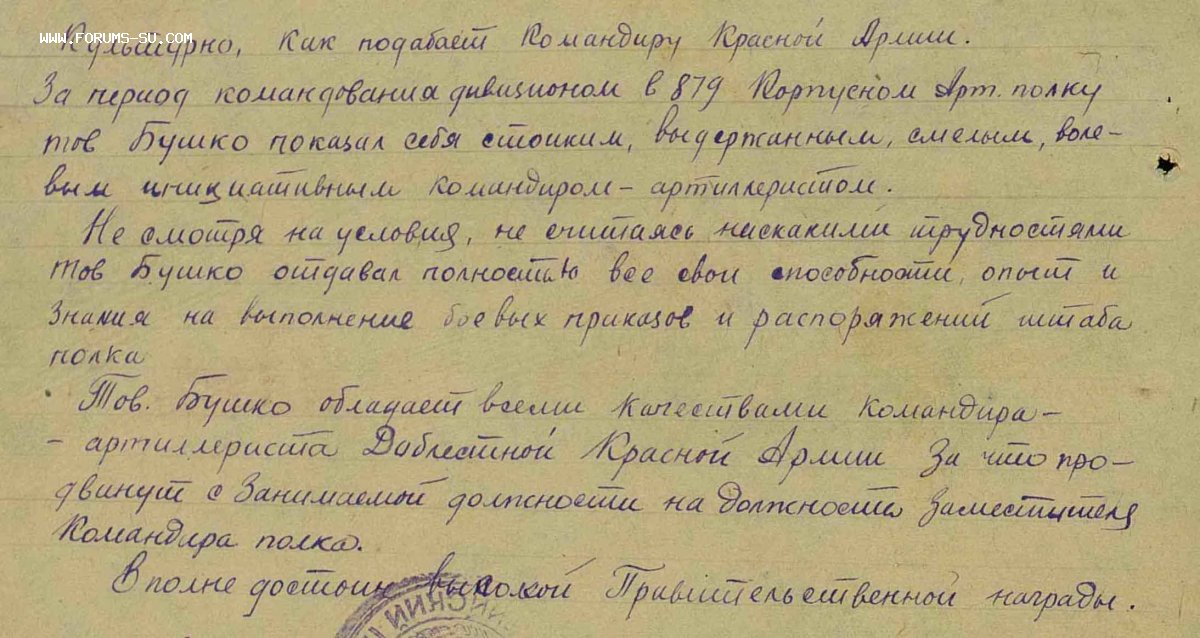 www.forums-su.com
Культурно, как подабает Командиру Красной Армии.
За период командования дивизионом в 879 Корпусном Арт. полку
тов Бушко показал себя стоиким, выдержанным, смелым, воле-
вым инициативным командиром-артиллеристом.
Не смотря на условия, не считаясь наскакими трудностями
тов Бушко отдавал полностью все свои способности, опыт и
знания на выполнение боевых приказов и распоряжений штаба
полка
Тов. Бушко обладает всеми качествами командира-
- артиллериста Даблестной Красной Армии За что про-
двинут с занимаемой должности на должность заместителя
Командира полка.
Вполне достоин высокой Правительственной награды.